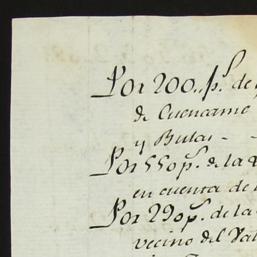 Por 200,, p.s de
de Cuencame
y Butas -
Por 550 p.s de la
en cuenta de
Por 290 p.s de la
vecino del Val